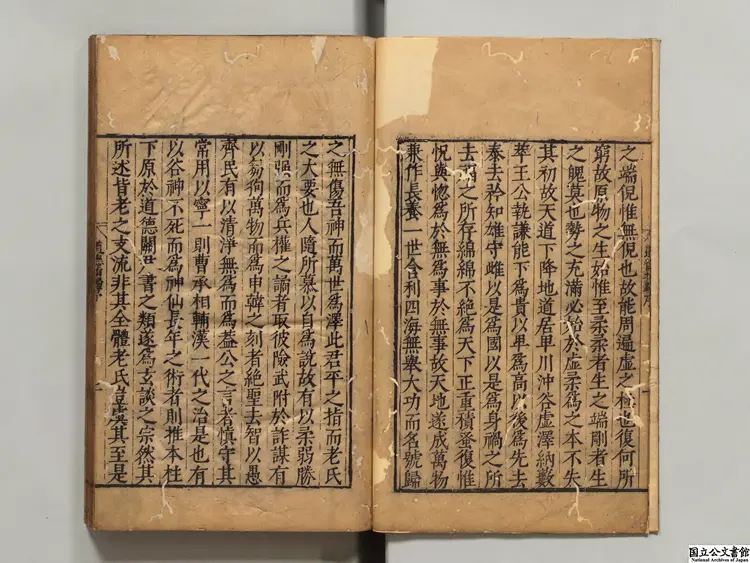 之端倪惟無倪也故能周遍虚之極也復何所
窮故原物之生始惟至柔柔者生之端剛者生
之魄莫也勢之充滿必始於虚柔爲之本不失
其初故天道下降地道居卑川沖谷虚澤納藪
萃王公執謙能下爲貴以卑爲高以後爲先去
泰去矜知雄守雌以是爲國以是爲身禍之所
去福之所存綿綿不絶爲天下正重積蚤復惟
怳與惚爲於無爲事於無事故天地遂成萬物
兼作長養一世含利四海無舉大功而名號歸
之無傷吾神而萬世爲澤此君平之指而老氏
之大要也人隨所慕以自爲說故有以柔弱勝
剛强而爲兵權之譎者取彼險武附於詐謀有
以芻狗萬物而爲申韓之刻者絶聖去智以愚
齊民有以清淨無爲而爲葢公之言者慎守其
常用以寧一則曹丞相輔漢一代之治是也有
以谷神不死而爲神仙長年之術者則推本柱
下原於道德關尹書之類遂爲玄談之宗然其
所述皆老之支流非其全體老氏豈虞其至是
国立公文書館
National Archives of Japan